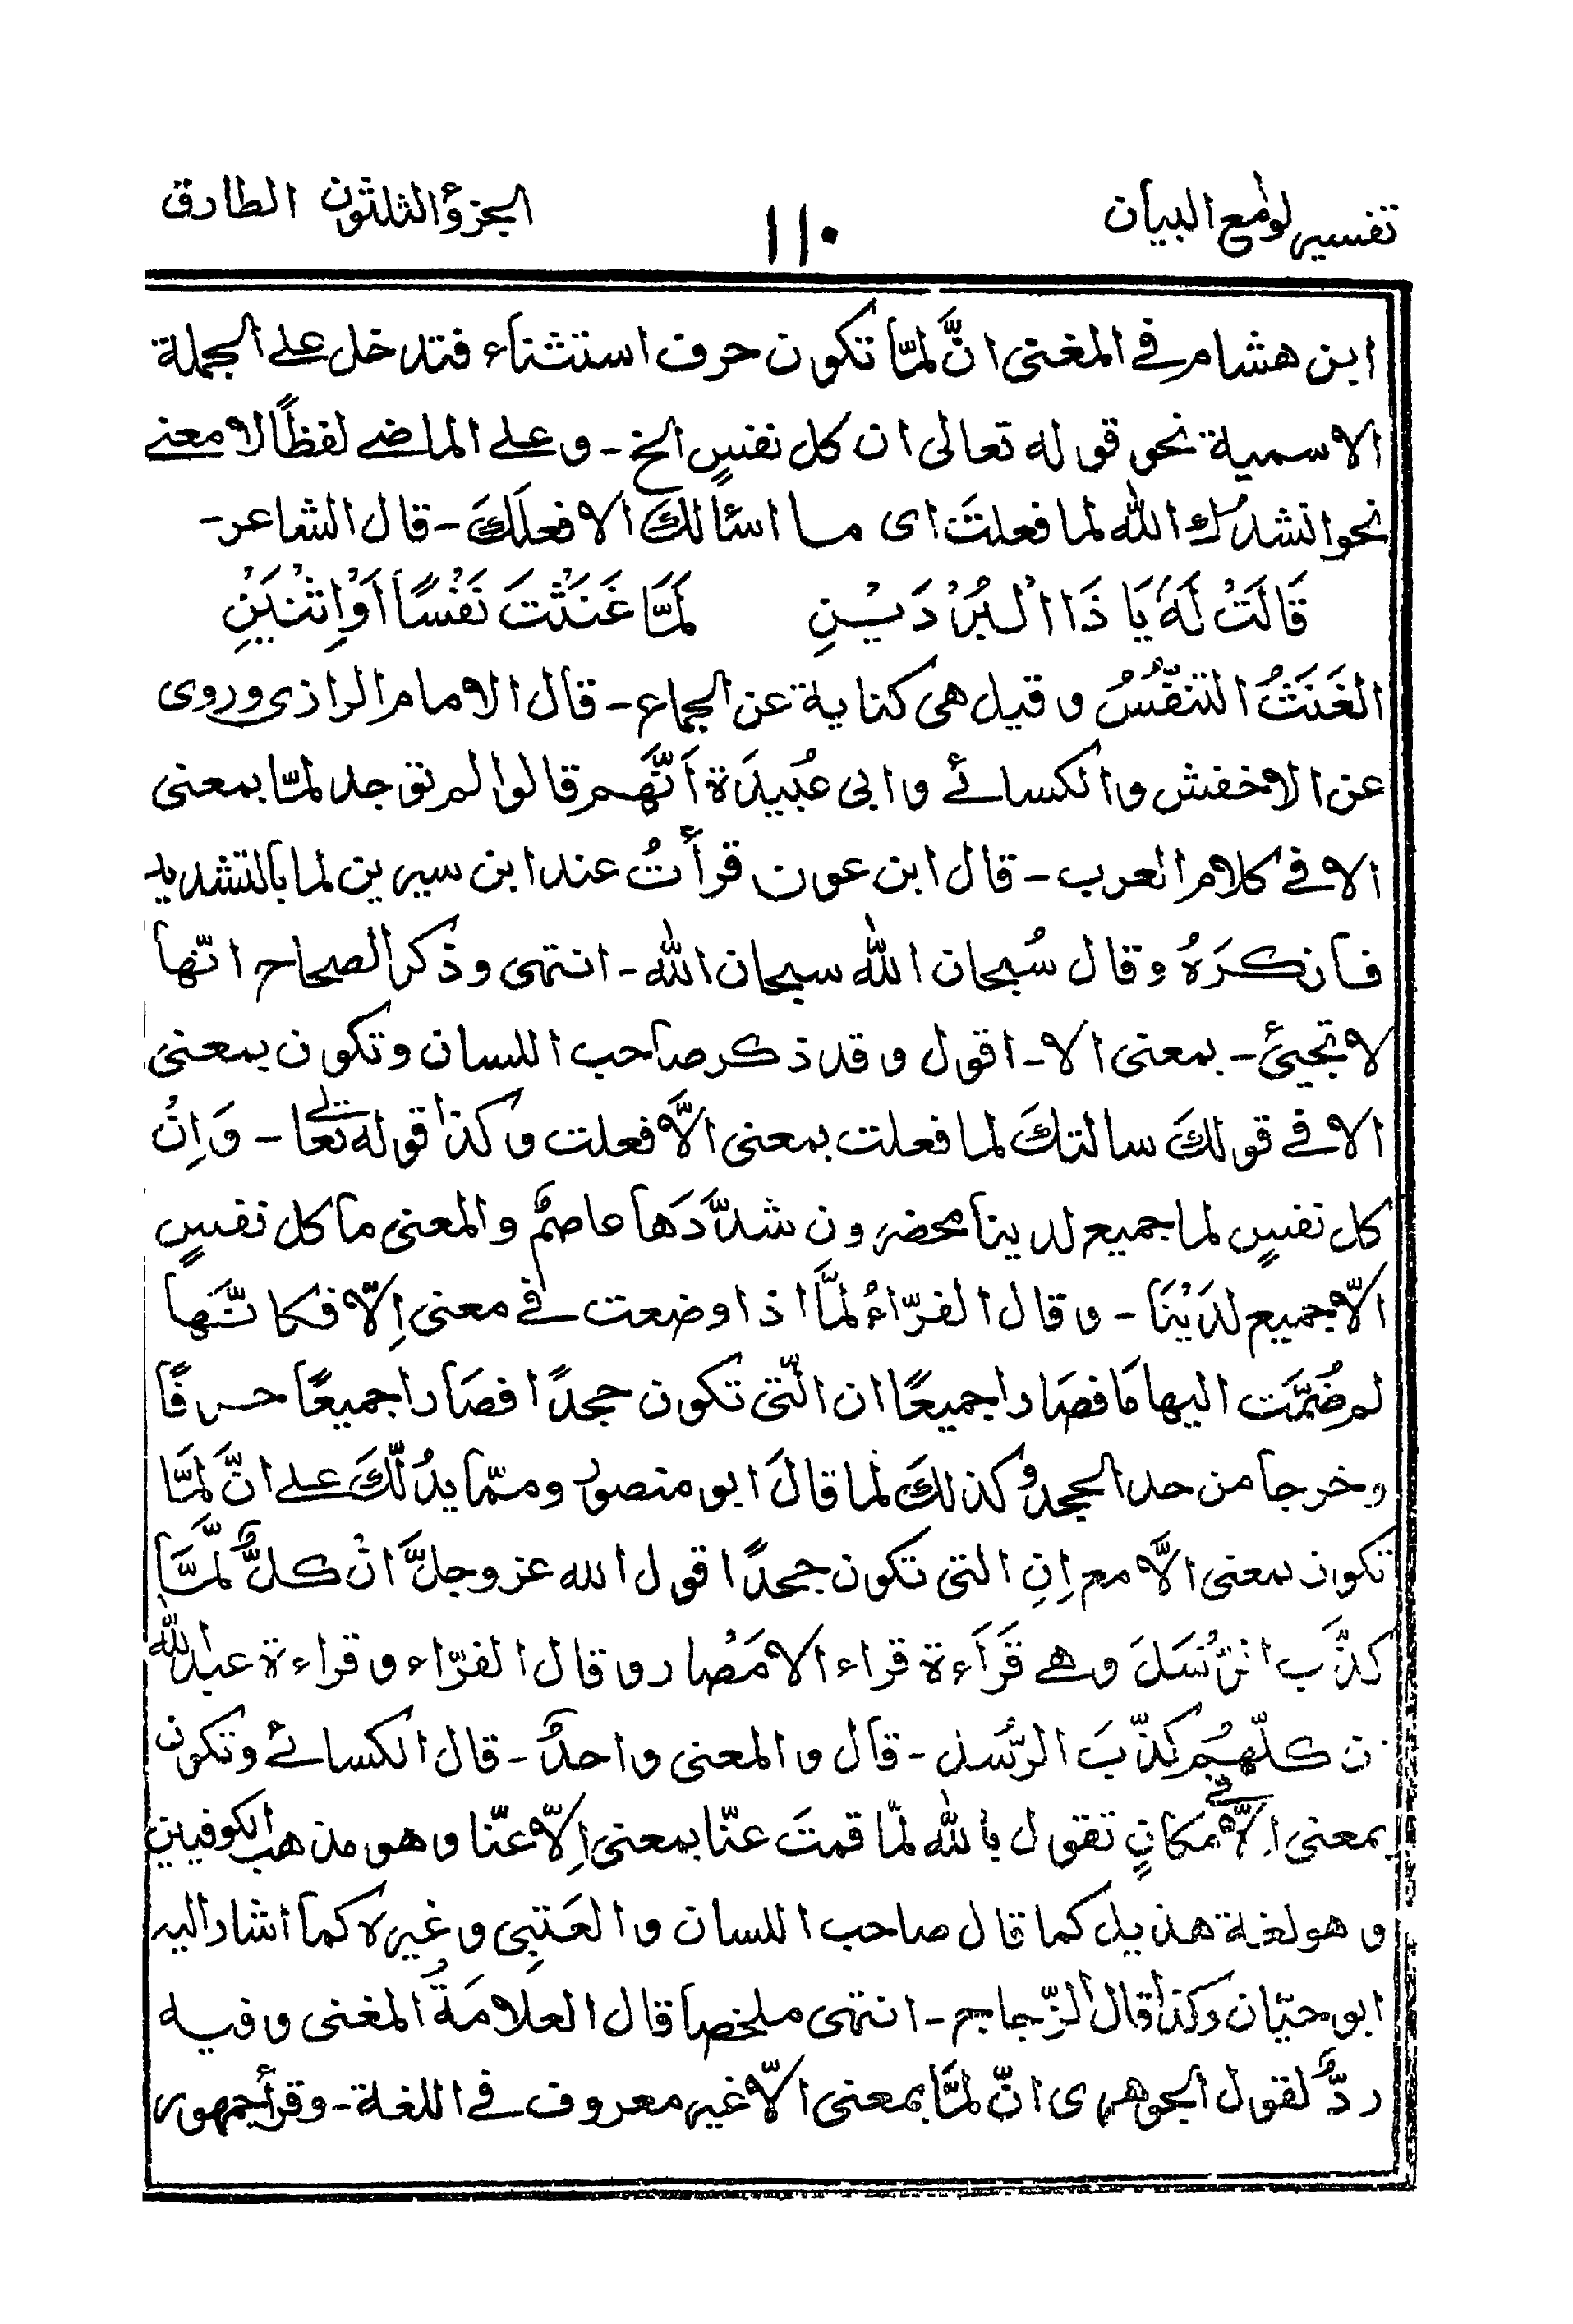 تفسير لوامع البيان
١١٠
الجزؤ الثلثون الطارق
ابن هشام في المغنى انَّ لمّا تكون حرف استثناء فتدخل على الجملة
الاسمية نحو قوله تعالى ان كل نفسٍ الخ ـ وعلى الماضى لفظًا لا معنى
نحو انشدك الله لما فعلتَ اى ما اسئالك الا فعلكَ ـ قال الشاعر ـ
قَالَتْ لَهُ يَا ذَا الْبُرْدَيْنِ لَمَّا غَنَثْتَ نَفْسًا اَوْ اِثْنَيْنِ
الغَنَثُ التنفّسُ وقيل هى كناية عن الجماع ـ قال الامام الرازى وروى
عن الاخفش والكسائى وابى عُبيدَة اَنَّهم قالوا لم توجد لمّا بمعنى
الا فى كلام العرب ـ قال ابن عون قرأتُ عند ابن سيرين لما بالتشديد
فانكرَهُ وقال سُبحان الله سبحان الله ـ انتهى وذكر الصحاح انّها
لا تجيئ ـ بمعنى الا ـ اقول وقد ذكر صاحب اللسان وتكون بمعنى
الا فى قولكَ سالتكَ لما فعلت بمعنى الَّا فعلت وكذا قوله تعالى ـ وَاِنْ
كل نفسٍ لما جميع لدينا محضرون شدَّدَها عاصمٌ والمعنى ما كل نفسٍ
الّا جميع لدَيْنَا ـ وقال الفرّاءُ لمَّا اذا وضعت فى معنى اِلّا فكانّها
لم ضُمَّت اليها مَا فصَارا جميعًا ان الّتى تكون جحدًا فصَارا جميعًا حرفًا
وخرجا من حد الجحدِ وكذلكَ لما قالَ ابو منصور ومما يدُلّكَ على انَّ لمَّا
تكون بمعنى الَّا مع اِنِ التى تكون جحدًا قول الله عز وجلَّ انْ كلٌّ لَّمَّا
كذَّب الرُّسَلَ وهى قَرَاءة قراء الامْصَار وقال الفرّاء وقراءة عبد الله
ن كلّهم كذّبَ الرُسل ـ قال والمعنى واحدٌ ـ قال الكسائى وتكون
بمعنى الّا فى مكانٍ تقول بالله لمّا قمتَ عنّا بمعنى اِلّا عنّا وهو مذهب الكوفيين
وهو لغة هذيل كما قال صاحب اللسان والعَتبِى وغيره كما اشار اليه
ابو حيّان وكذا قال الزّجاج ـ انتهى ملخصا قال العلامَةُ المغنى وفيه
ردٌّ لقول الجوهرى انّ لمَّا بمعنى الّا غير معروف فى اللغة ـ وقرأ جمهور